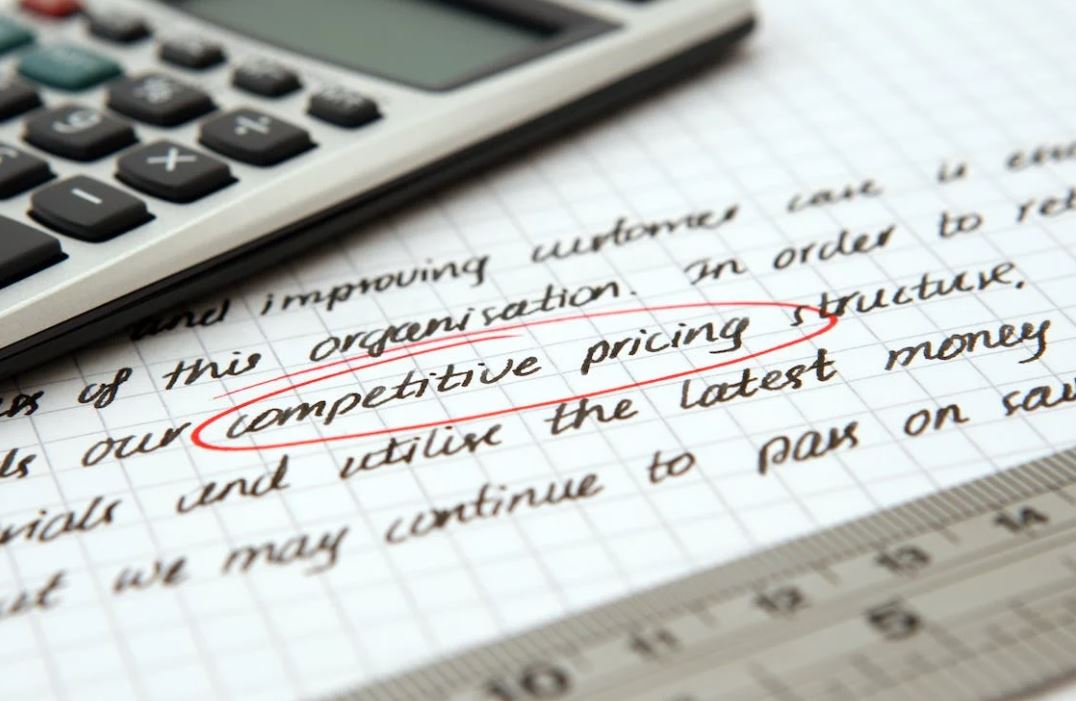 and improving customer care is
of this organisation. In order to
our competitive pricing structure.
and utilise the latest money
we may continue to pass on
10 11 12 13 14
5
9 % × ÷ −